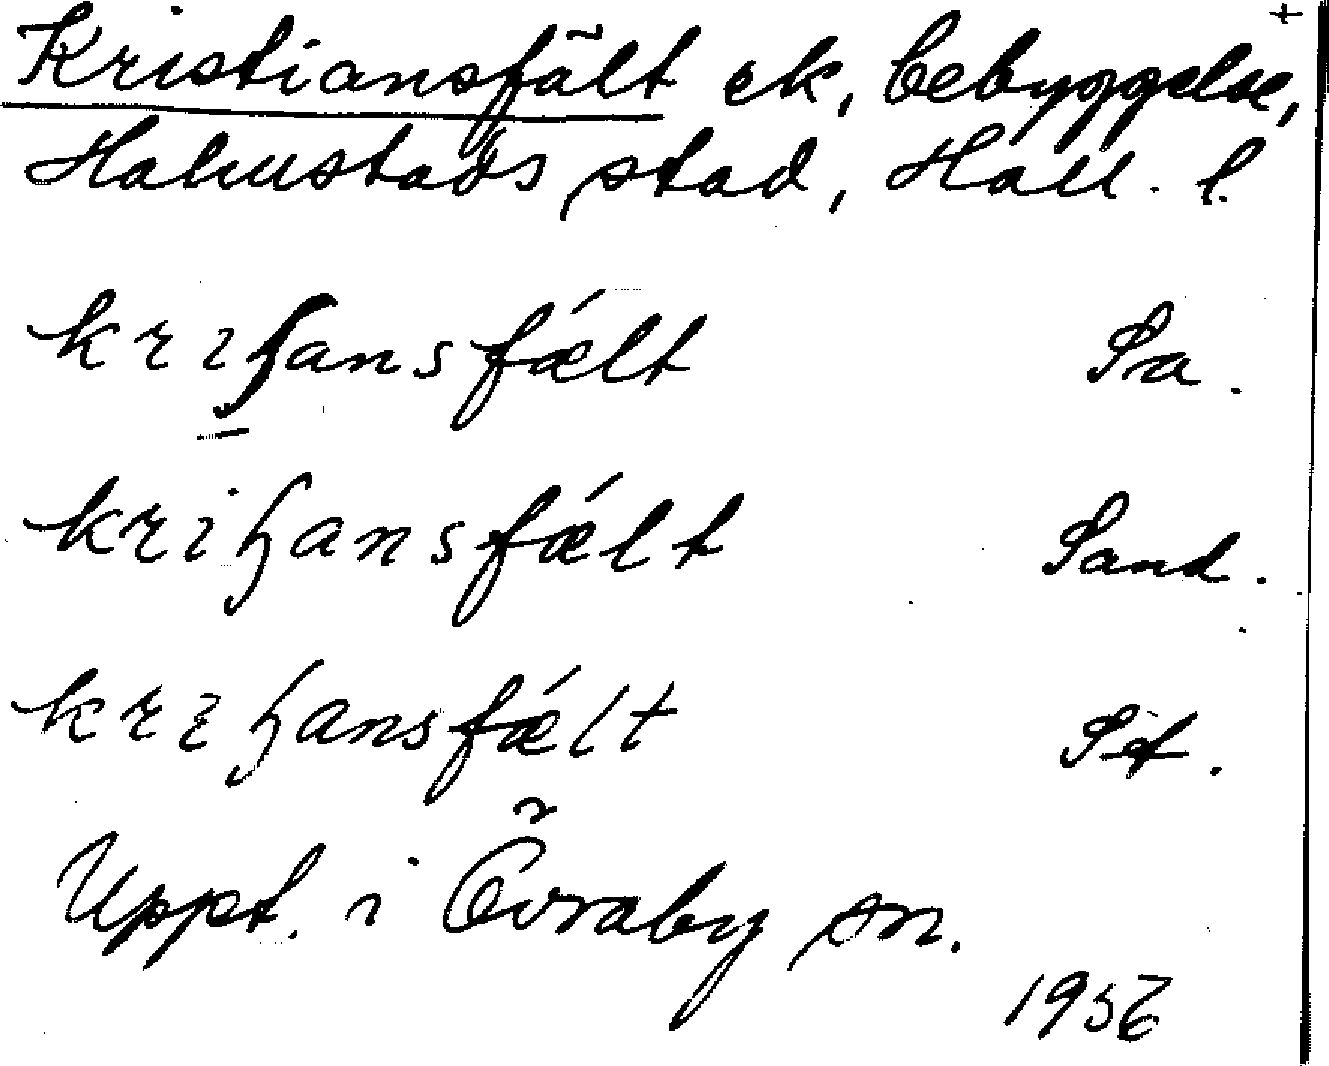 Kristiansfält ek, bebyggelse, +
Halmstads stad, Hall. l.
kriꞕansfǽlt Sa.
kriꞕansfǽlt Sand.
kriꞕansfǽlt
Uppt. i Övraby sn.
1936